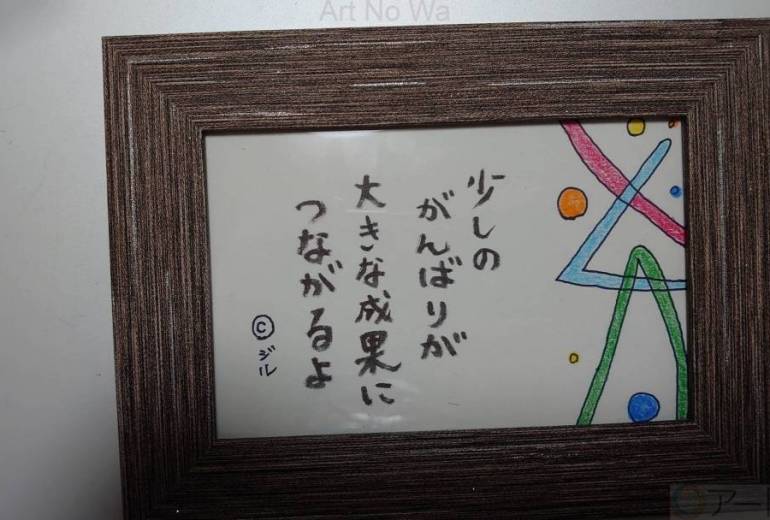 Art No Wa
少しの
がんばりが
大きな成果に
つながるよ
©ジル
アー